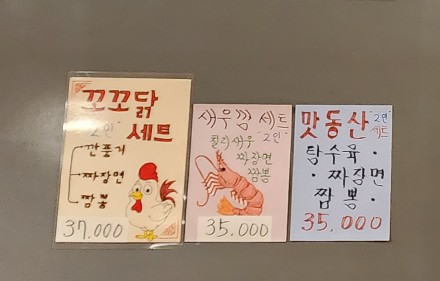 꼬꼬닭
"2인" 세트
깐풍기
짜장면
짬뽕
37,000
새우깜 세트
칠리새우 "2인"
짜장면
짬뽕
35,000
맛동산 "2인" 세트
탕수육
· 짜장면
짬뽕 ·
35,000